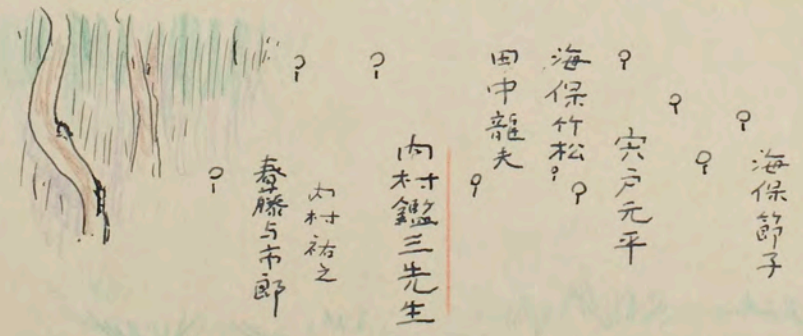 海保節子
宍戸元平
海保竹松
田中龍夫
内村鑑三先生
内村祐之
春藤与市郎